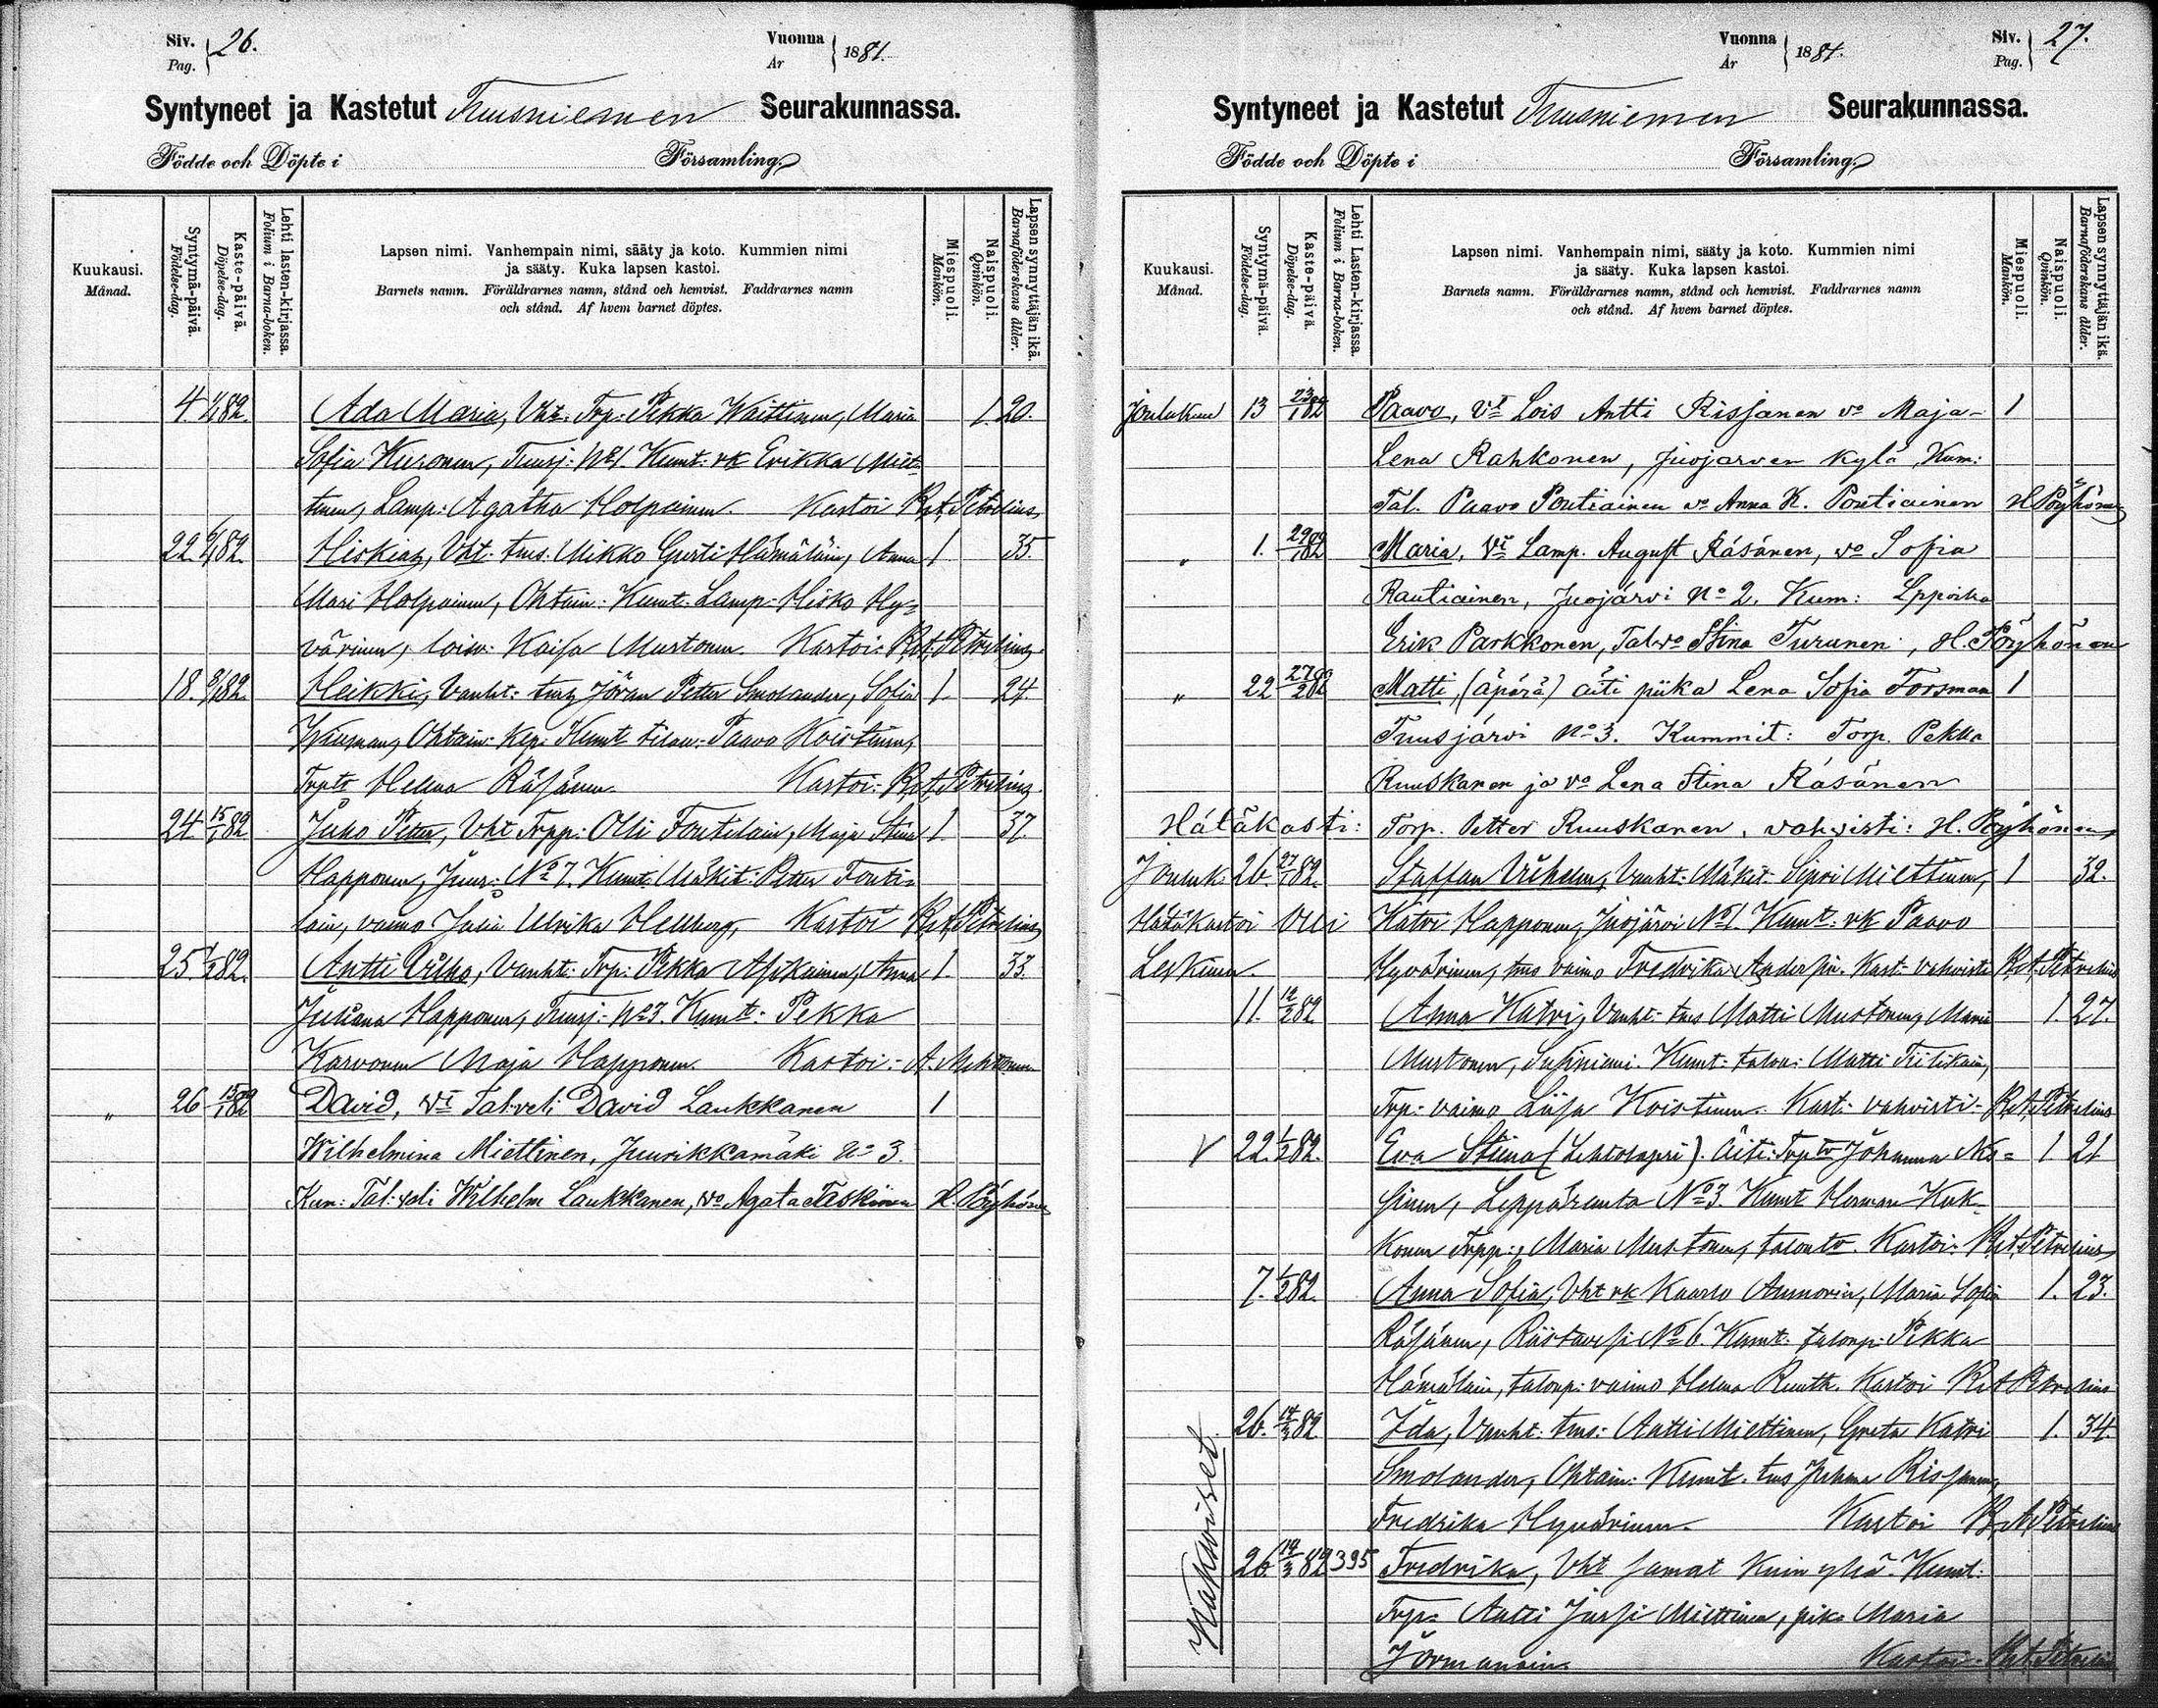 Siv. 26.
Pag.
Vuonna 1881.
År
Syntyneet ja Kastetut Tuusniemen Seurakunnassa.
Födde och Döpte i Församling.
Kuukausi.
Månad.
Syntymä-päivä.
Födelse-dag.
Kaste-päivä.
Döpelse-dag.
Lehti lasten-kirjassa.
Folium i Barna-boken.
Lapsen nimi. Vanhempain nimi, sääty ja koto. Kummien nimi
ja sääty. Kuka lapsen kastoi.
Barnets namn. Föräldrarnes namn, stånd och hemvist. Faddrarnes namn
och stånd. Af hvem barnet döptes.
Miespuoli.
Mankön.
Naispuoli.
Qvinkön.
Lapsen synnyttäjän ikä.
Barnaföderskans ålder.
4. 82. Ada Maria, Vht. Trp: Pekka Waittinen, Maria 1. 20.
Sofia Kuronen, Tuusj: No 1. Kumt: rk Erikka Miet-
tinen, Lamp: Agatha Holpainen. Kastoi Petrelius
22. 82. Hiskias, Vht. tms. Mikko Gusti Hämäläin, Anna 1 35.
Mari Holpainen, Ohtain: Kumt: Lamp: Hisko Hy-
värinen, loisv: Kaisa Mustonen. Kastoi: Petrelius
18. 82. Heikki, Vanht: Jöran Petter Smolander, Sofia 1. 24.
Ohtain: Kumt Paavo Koistinen,
Helena Räsänen. Kastoi: Petrelius
24. 15/1 82. Juho Petter, Vht Trpp: Olli Fontelain, Maja Stina 1. 37.
Happonen, Juur: No 7. Kumt: Mäkit: Petter Fonte-
lain, vaimo Julia Ulrika Hellberg, Kastoi Petrelius
25. 82. Antti Vilho, Vanht: Trp: Pekka Asikainen, Anna 1. 33.
Juliana Happonen, Tuusj: No 3. Kumt: Pekka
Karvonen Maja Happonen. Kastoi: A.
" 26 15/1 82 David, vt Tal: veli David Laukkanen 1
Wilhelmina Miettinen, Juurikkamäki No 3.
Kum: Tal: veli Wilhelm Laukkanen, vo Agata Taskinen H. Pöyhönen
Vuonna 1881.
År
Siv. 27.
Pag.
Syntyneet ja Kastetut Tuusniemen Seurakunnassa.
Födde och Döpte i Församling.
Kuukausi.
Månad.
Syntymä-päivä.
Födelse-dag.
Kaste-päivä.
Döpelse-dag.
Lehti Lasten-kirjassa.
Folium i Barna-boken.
Lapsen nimi. Vanhempain nimi, sääty ja koto. Kummien nimi
ja sääty. Kuka lapsen kastoi.
Barnets namn. Föräldrarnes namn, stånd och hemvist. Faddrarnes namn
och stånd. Af hvem barnet döptes.
Miespuoli.
Mankön.
Naispuoli.
Qvinkön.
Lapsen synnyttäjän ikä.
Barnaföderskans ålder.
Joulukuu 13 23/1 82 Paavo, vt Lois Antti Rissanen vo Maja- 1
Lena Rahkonen, Juojarven kylä, Kum:
Tal. Paavo Pontiainen vo Anna K. Pontiainen H Pöyhönen
" 1. 29/1 82 Maria, vt Lamp. August Räsänen, vo Sofia
Rautiainen, Juojärvi No 2. Kum:
Erik Parkkonen, Talvo Stina Turunen, H. Pöyhönen
" 22 27/2 82 Matti, (äpärä) äiti piika Lena Sofia Forsman 1
Tuusjärvi No 3. Kummit: Torp. Pekka
Ruuskanen ja vo Lena Stina Räsänen
Hätäkasti: Torp. Petter Ruuskanen, vahvisti: H. Pöyhönen
Jouluk. 26. 27/1 82. Staffan Vilhelm, Vanht: Mäkit: Sipri Miettinen, 1 32.
Hätäkastoi Olli Katri Happonen, Juojärvi No 1. Kumt: rk Paavo
Leskinen. Hyvärinen, tms vaimo Fredrika Kast: vahvisti Petrelius
11. 12/2 82 Anna Katri, Vanht: tms Matti Mustonen, Maria 1. 27.
Mustonen, Kumt: Matti Tiilikain,
Trp: vaimo Liisa Koistinen. Kast: vahvisti: Petrelius
V 22. 1/2 82. Eva Stiina (Lehtolapsi). Äiti: Johanna No= 1. 21
sinen, Leppäranta No 3. Kumt Herman Kuk-
konen Trpp:, Maria Mustonen, Kastoi: Petrelius
7. 1/2 82. Anna Sofia, Vht rk Kaarlo Ammorin, Maria Sofia 1. 23.
Räsänen, Riistavesi No 6. Kumt: talonp: Pekka
Hämäläin, talonp: vaimo Helena Ruuth. Kastoi Petrelius
Kaksoiset.
26. 14/3 82 Ida, Vanht: tms: Antti Miettinen, Greta Katri 1. 34.
Smolander, Ohtain: Kumt. tms Juhana Rissanen,
Fredrika Hyvärinen. Kastoi Petrelius
26. 14/3 82 395 Fredrika, Vht samat kuin yllä. Kumt:
Trp: Antti Jussi Miettinen, pika Maria
Jormanain. Kastoi: Petrelius